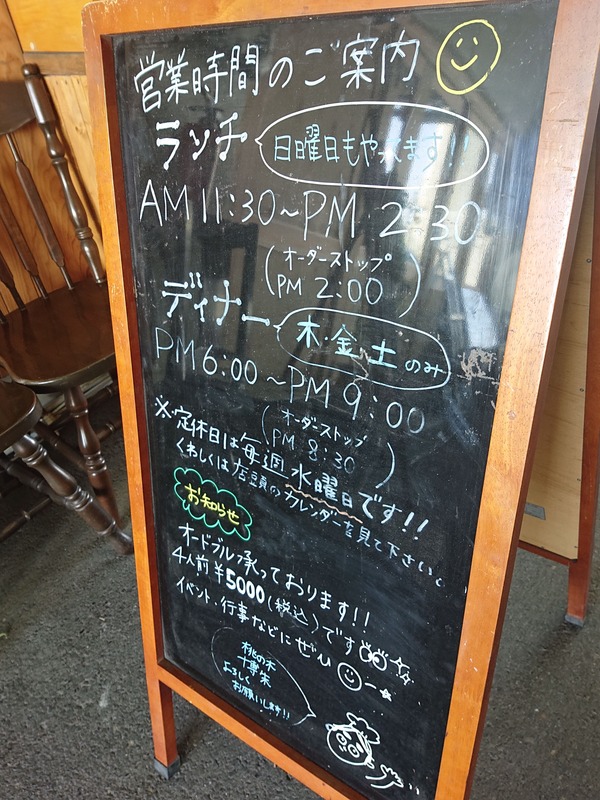 営業時間のご案内
ランチ 日曜日もやってます!!
AM 11:30~PM 2:30
(オーダーストップ
PM 2:00)
ディナー 木・金・土のみ
PM 6:00~PM 9:00
(オーダーストップ
PM 8:30)
※定休日は毎週水曜日です!!
くわしくは店頭のカレンダーを見て下さい。
お知らせ
オードブル承っております!!
4人前¥5000(税込)です
イベント・行事などにぜひ
桃の木
よろしく
お願いします!!